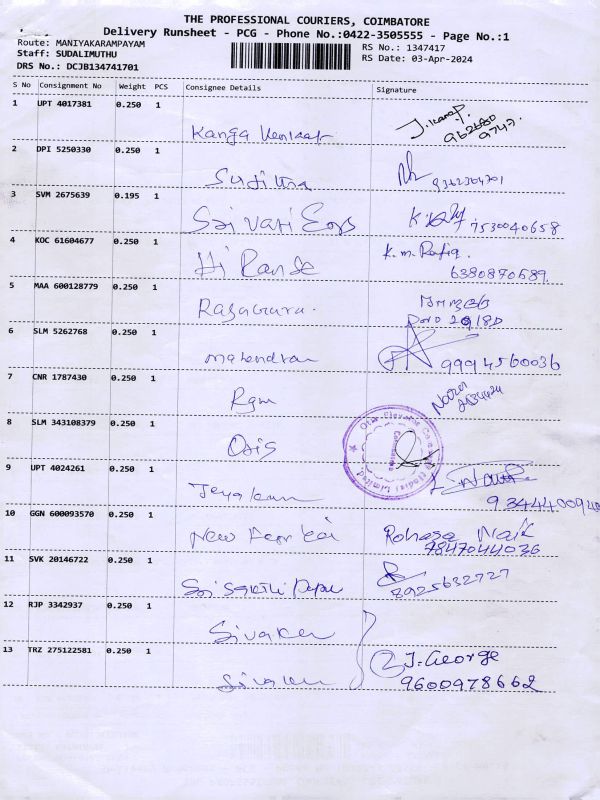 THE PROFESSIONAL COURIERS, COIMBATORE
Delivery Runsheet - PCG - Phone No.:0422-3505555 - Page No.:1
Route: MANIYAKARAMPAYAM
RS No.: 1347417
Staff: SUDALIMUTHU
RS Date: 03-Apr-2024
DRS No.: DCJB134741701
S No Consignment No Weight PCS Consignee Details Signature
1 UPT 4017381 0.250 1
Kanga
2 DPI 5250330 0.250 1
9362364701
3 SVM 2675639 0.195 1
Sri Vari Engs 7530040658
4 KOC 61604677 0.250 1 K.m. Rafiq
Hi Range 6380870689
5 MAA 600128779 0.250 1
Rajaguru.
6 SLM 5262768 0.250 1
Mahendran 9994560036
7 CNR 1787430 0.250 1
Rgm
8 SLM 343108379 0.250 1
Otis Otis Elevator Limited
9 UPT 4024261 0.250 1
9344400940
10 GGN 600093570 0.250 1
New Naik
7847044036
11 SVK 20146722 0.250 1
Sri Sakthi 8925632727
12 RJP 3342937 0.250 1
13 TRZ 275122581 0.250 1 2 J. George
9600978662